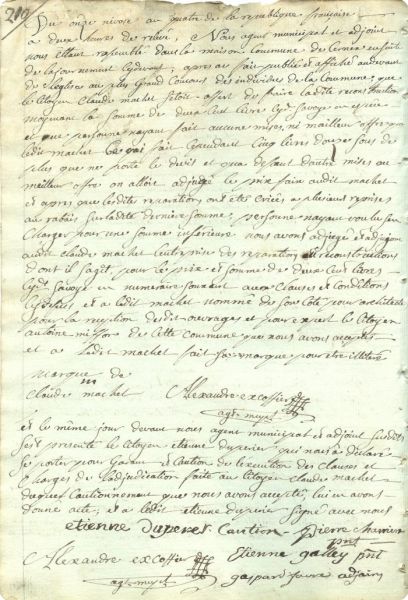 210
Du onze nivose au quatre de la republique françoise
a deux heures de relevé, Nous agent municipal et adjoint
nous étant rassemblé dans la maison commune de cernix ensuite
de lajournement cydevant; apres avoir fait publié et affiché audevant
de l'eglise au plus Grand Concours des individus de la Commune; que
le Citoyen Claude machet setoit offert de faire ladite reconstruction
moyenant la somme de deux Cent livre Cy Savoye en espece
et que personne nayant fait aucune mises, ni meilleur offre que
ledit machet
plus que ne porte le devit et qua defaut dautre mises au
meilleur ofre on alloit adjugé le prix fait audit machet
et apres que lesdite reparation ont ete Criée a plusieurs reprises
au rabais sur ladite derniere somme; personne nayant voulu sen
Charger pour une somme inferieure nous avons adjugé et adjugeons
audit claude machet lentreprise des reparation et reconstructions
dont il sagit, pour le prix et somme de deux Cent livres
Cy Savoye en numeraire sonnant aux Clauses et Conditions
Cydessus et a ledit machet nommé de son Coté pour architecte
pour la reception desdit ouvrages et pour expert le Citoyen
antoine de cette commune que nous avons accepté
et a ledit machet fait sa marque pour etre illiteré
marque de
m
claude machet Alexandre excoffier
agt mupt
et le même jour devant nous agent municipal et adjoint susdits
sest presenté le Citoyen etienne duperier qui nous a déclaré
se porter pour Garant et Caution de lexecution des clauses et
Charges de ladjudication faite au Citoyen claude machet
duquel Cautionnement que nous avons accepté, lui en avons
donné acte, et a ledit etienne duperier signé avec nous
etienne Duperier Caution pierre
pnt
Alexandre excoffier Etienne galley pnt
agt mupt gaspard favre adjoin